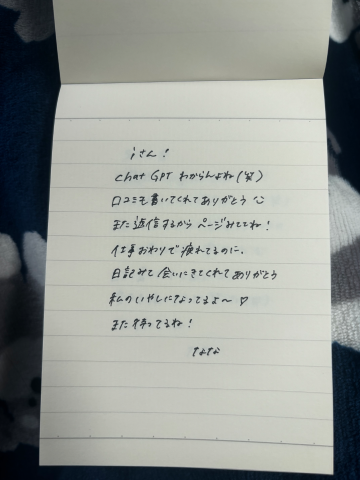 iさん!
chat GPT わからんよね(笑)
口コミも書いてくれてありがとう
また返信するから ページみててね!
仕事おわりで疲れてるのに、
日記みて会いにきてくれてありがとう
私のいやしになってるよ〜♡
また待ってるね!
なな